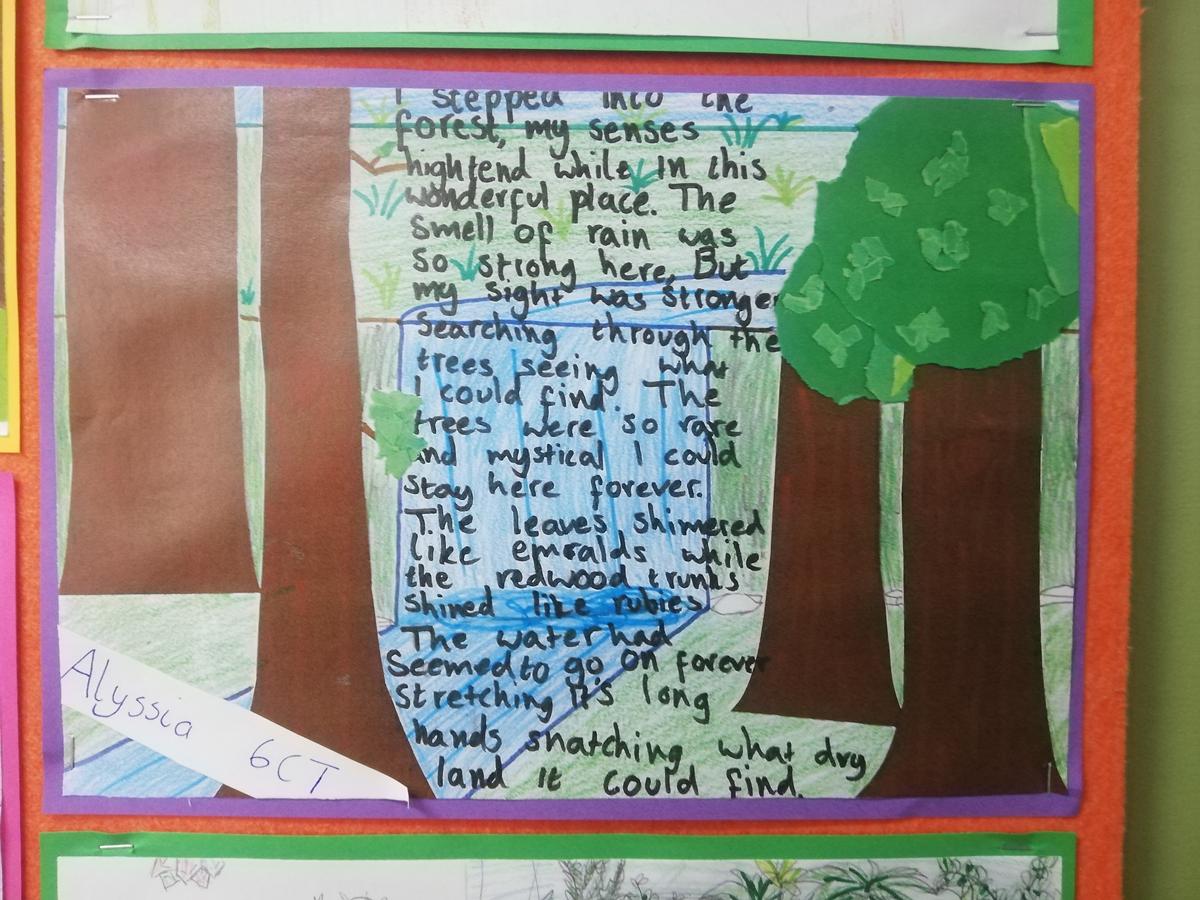 I stepped into the
forest, my senses
hightend while in this
wonderful place. The
smell of rain was
so strong here, But
my sight was stronger
Searching through the
trees seeing what
I could find. The
trees were so rare
and mystical I could
stay here forever.
The leaves shimered
like emralds while
the redwood trunks
shined like rubies
The water had
Seemed to go on forever
stretching it's long
hands snatching what dry
land it could find.
Alyssia 6CT